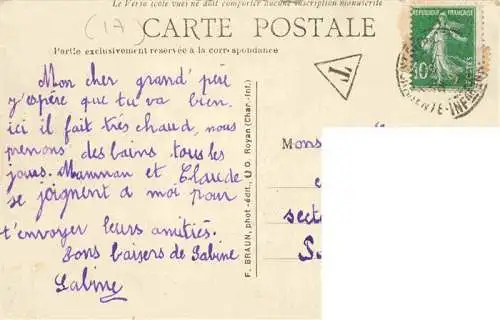 Le Verso seule vues ne doit comporter aucune inscription manuscrite
(17)
CARTE POSTALE
Partie exclusivement réservée à la correspondance
RÉPUBLIQUE FRANÇAISE
10
POSTES
T
Mon cher grand' père
j'espère que tu va bien.
ici il fait très chaud, nous
prenons des bains tous les
jours. Mamman et Claude
se joignent a moi pour
t'envoyer leurs amitiés.
Bons baisers de Sabine
Sabine
F. BRAUN, phot.-édit., Royan (Char.-Inf.)
Mons
sect